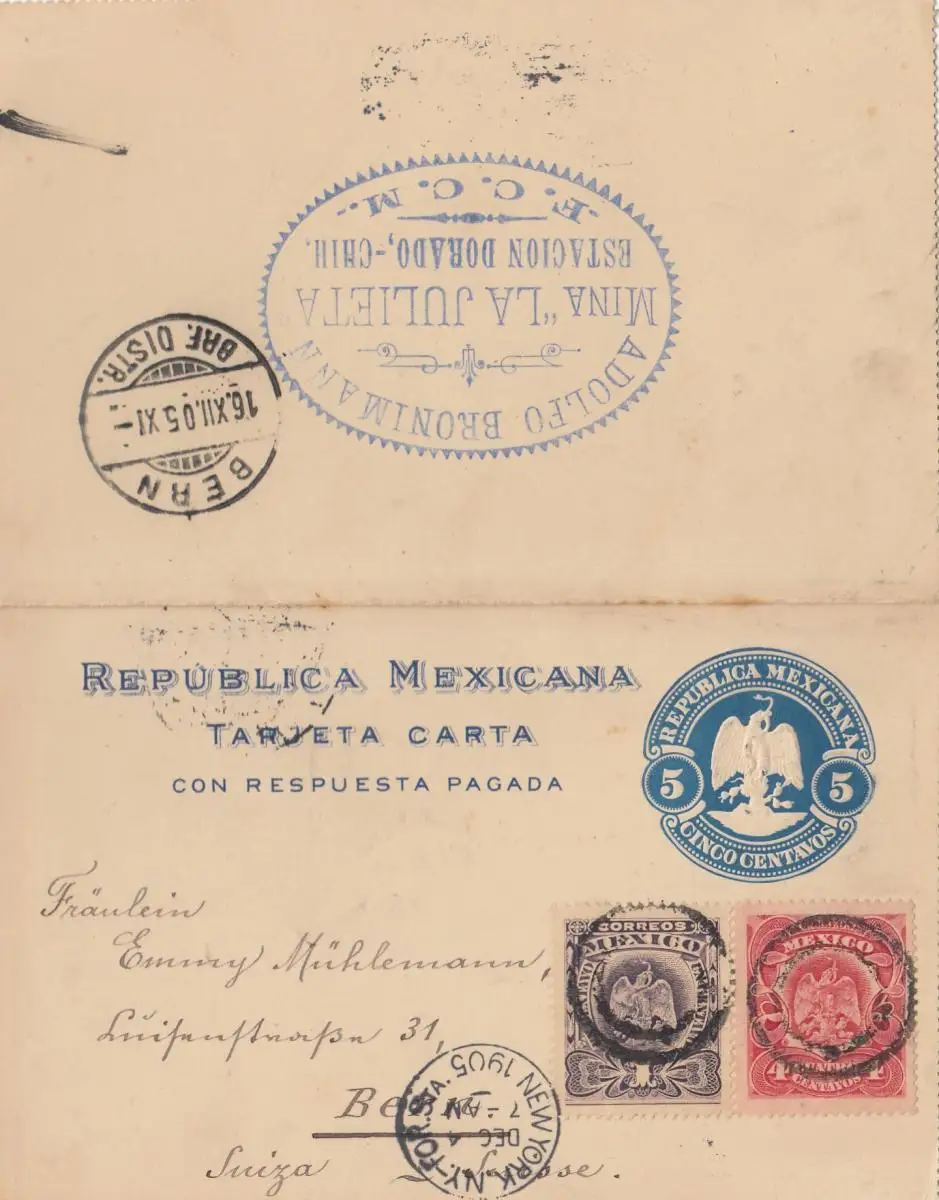 F. C. C. M.
ESTACION DORADO,-CHIH.
MINA "LA JULIETA"
ADOLFO BRONIMANN
BRF. DISTR.
16.XII.05 XI-
BERN
REPÚBLICA MEXICANA
TARJETA CARTA
CON RESPUESTA PAGADA
REPUBLICA MEXICANA
5 5
CINCO CENTAVOS
Fräulein
Emmy Mühlemann,
Luisenstraße 31,
Bern
Suiza
CORREOS
MEXICO
1
MEXICO
4 4
CENTAVOS
NEW YORK, N.Y.-FOR. STA.
DEC 4
7-AM
1905